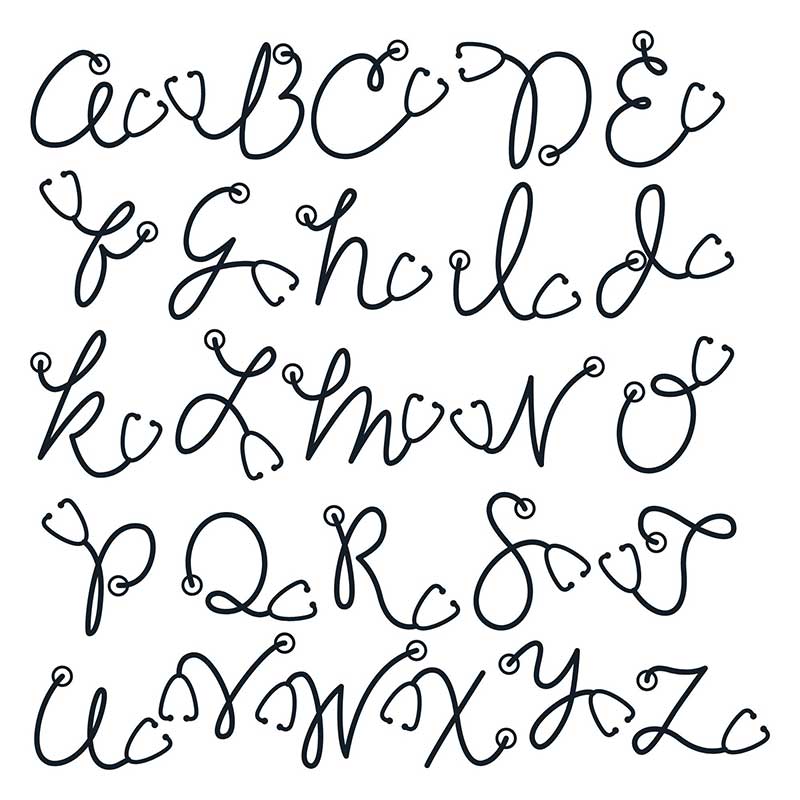 a B C D E
f G h I J
k L m N O
p Q R S T
U V W X Y Z